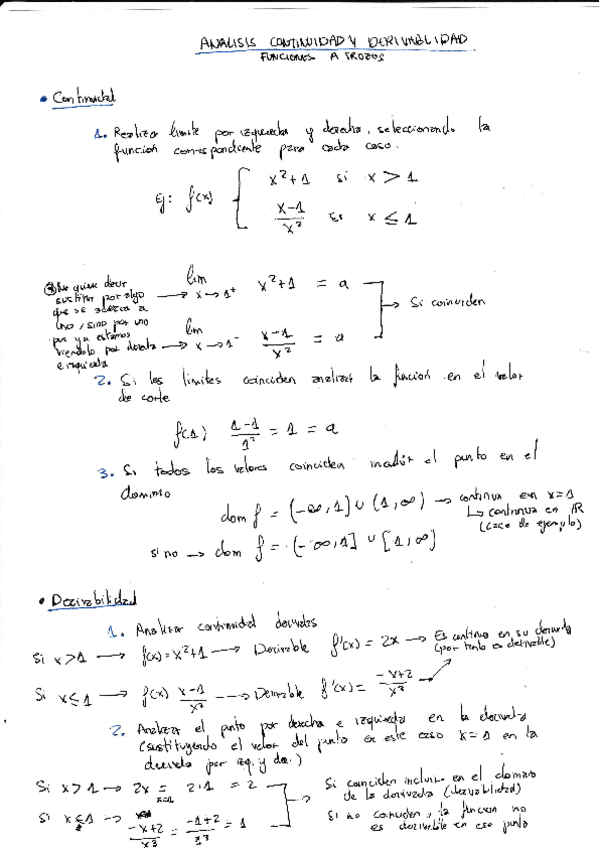 ANALISIS CONTINUIDAD Y DERIVABLIDAD
FUNCIONES A TROZOS
• Continuidad
1. Realizar límite por izquierda y derecha, seleccionando la
función correspondiente para cada caso.
Ej: f(x) { x²+1 si x > 1
x-1/x² Es x ≤ 1
No quiere decir
sustituir por algo
que se acerca a
uno, sino por uno
que ya estamos
viendolo por derecha
e izquierda
lim x→1⁺ x²+1 = a
lim x→1⁻ x-1/x² = a
→ Si coinciden
2. Si los límites coinciden analizar la función en el valor
de corte
f(1) 1-1/1² = 1 = a
3. Si todos los valores coinciden incluir el punto en el
dominio
dom f = (-∞,1] ∪ (1,∞) → continua en x=1
↳ continua en ℝ
(caso de ejemplo)
si no → dom f = (-∞,1] ∪ [1,∞)
• Derivabilidad
1. Analizar continuidad derivadas
Si x>1 → f(x)=x²+1 → Derivable f'(x) = 2x → Es continua en su derivada
(por tanto es derivable)
Si x≤1 → f(x) x-1/x² → Derivable f'(x) = -x+2/x³
2. Analizar el punto por derecha e izquierda en la derivada
(sustituyendo el valor del punto en este caso x=1 en la
derivada por izq. y der.)
Si x>1 → 2x = 2·1 = 2
x=1
Si x≤1 → -x+2/x³ = -1+2/1³ = 1
Si coinciden incluir en el dominio
de la derivada (derivablidad)
Si no coinciden, la función no
es derivable en ese punto